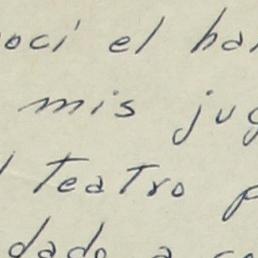 ocí el ha
mis jug
teatro p
dado a co